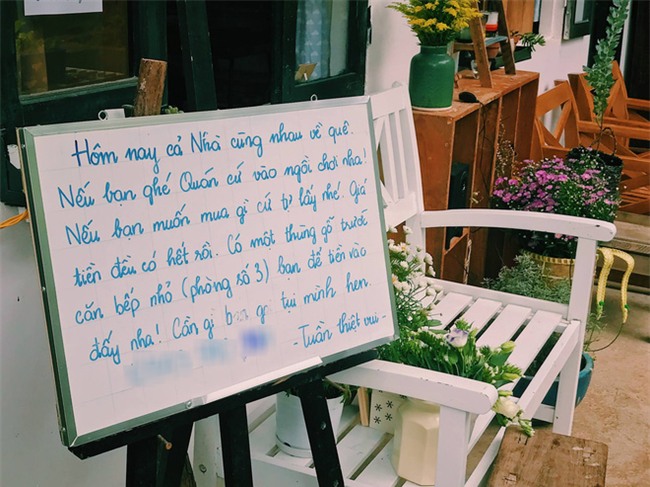 Hôm nay cả Nhà cùng nhau về quê.
Nếu bạn ghé Quán cứ vào ngồi chơi nha!
Nếu bạn muốn mua gì cứ tự lấy nhé. Giá
tiền đều có hết rồi. Có một thùng gỗ trước
căn bếp nhỏ (phòng số 3) bạn để tiền vào
đấy nha! Cần gì gọi tụi mình hen.
- Tuần thiệt vui -